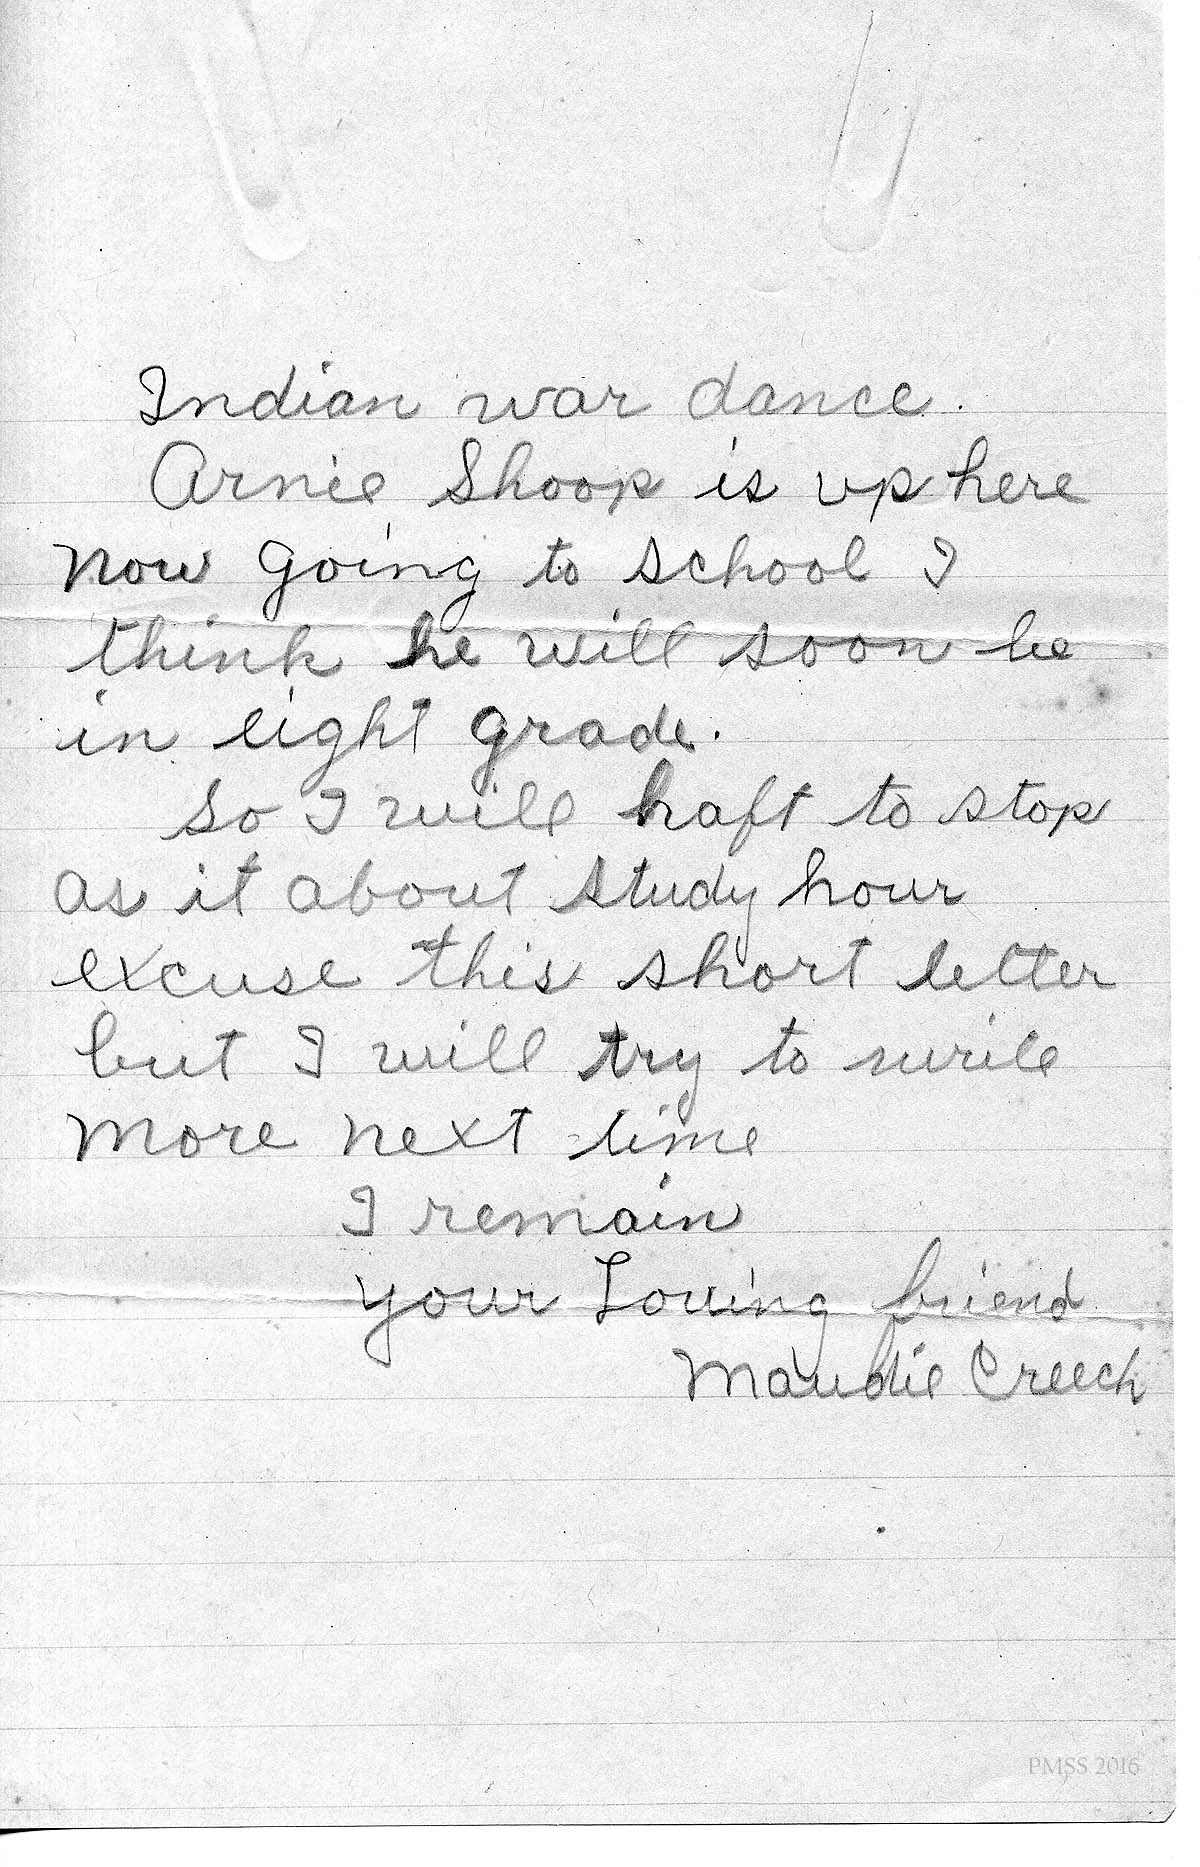 Indian war dance.
Arnie Shoop is up here
now going to school I
think he will soon be
in eight grade.
So I will haft to stop
as it about study hour
excuse this short letter
but I will try to write
more next time
I remain
your Loving friend
Maudie Creech
PMSS 2016